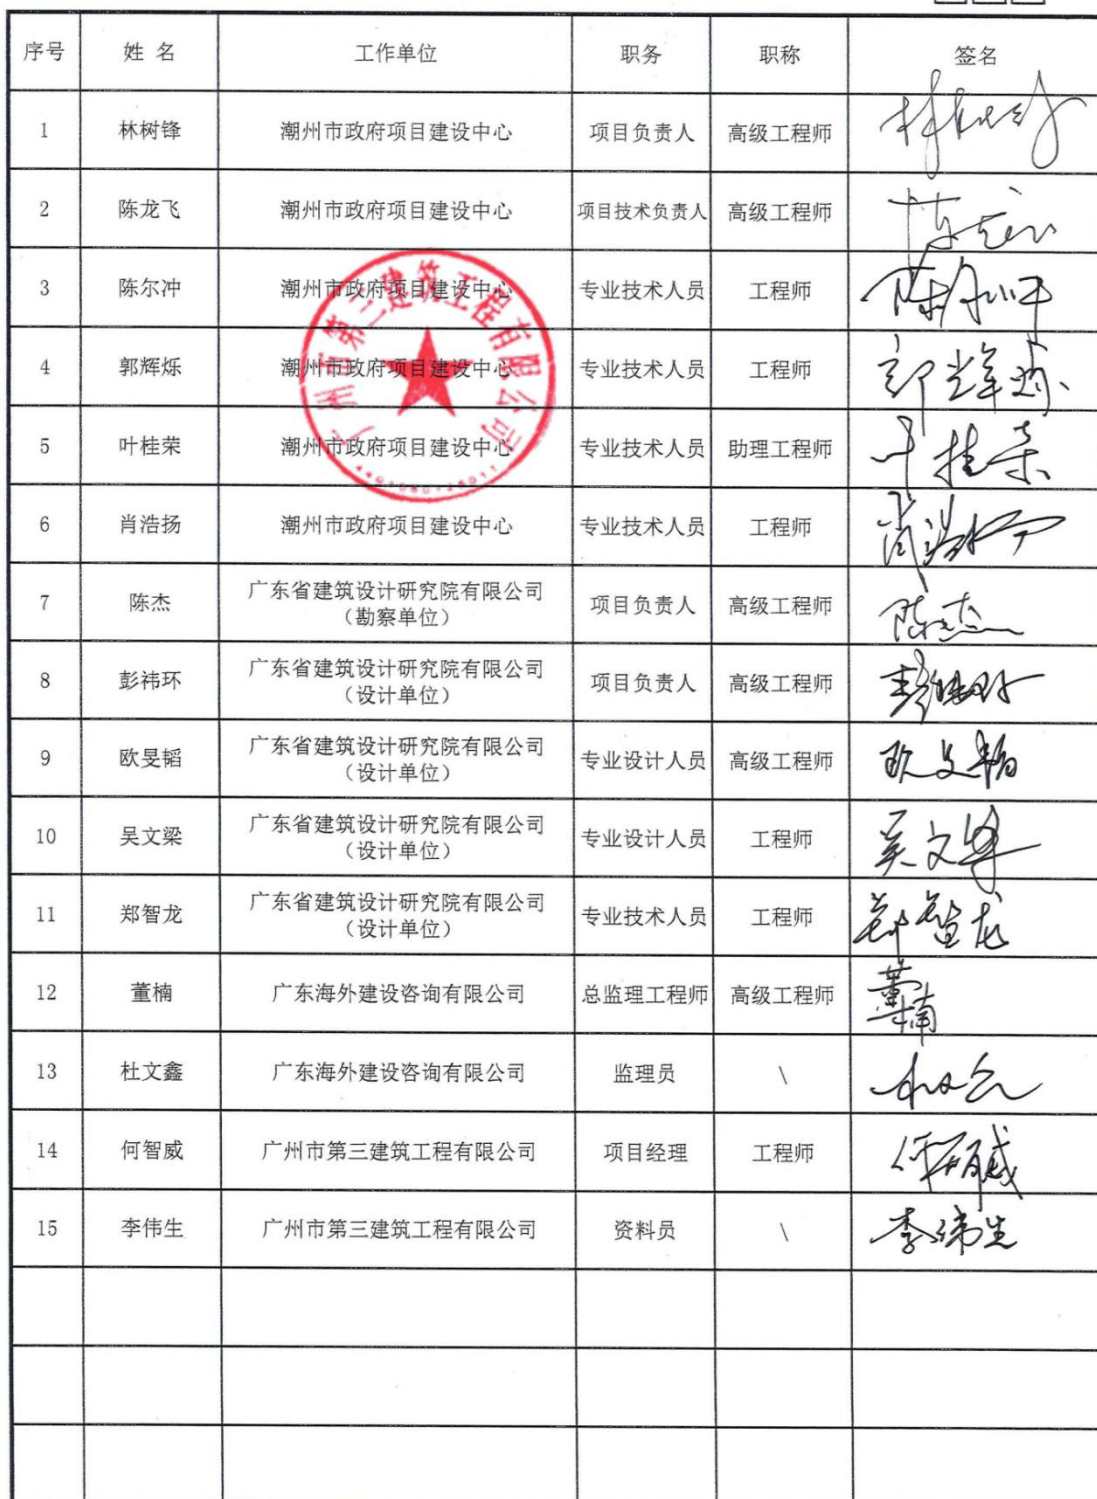 序号 姓 名 工作单位 职务 职称 签名
1 林树锋 潮州市政府项目建设中心 项目负责人 高级工程师 林树锋
2 陈龙飞 潮州市政府项目建设中心 项目技术负责人 高级工程师 陈龙飞
3 陈尔冲 潮州市政府项目建设中心 专业技术人员 工程师 陈尔冲
4 郭辉烁 潮州市政府项目建设中心 专业技术人员 工程师 郭辉烁
5 叶桂荣 潮州市政府项目建设中心 专业技术人员 助理工程师 叶桂荣
6 肖浩扬 潮州市政府项目建设中心 专业技术人员 工程师 肖浩扬
7 陈杰 广东省建筑设计研究院有限公司 项目负责人 高级工程师 陈杰
（勘察单位）
8 彭祎环 广东省建筑设计研究院有限公司 项目负责人 高级工程师
（设计单位）
9 欧旻韬 广东省建筑设计研究院有限公司 专业设计人员 高级工程师 欧旻韬
（设计单位）
10 吴文梁 广东省建筑设计研究院有限公司 专业设计人员 工程师 吴文梁
（设计单位）
11 郑智龙 广东省建筑设计研究院有限公司 专业技术人员 工程师 郑智龙
（设计单位）
12 董楠 广东海外建设咨询有限公司 总监理工程师 高级工程师 董楠
13 杜文鑫 广东海外建设咨询有限公司 监理员 \
14 何智威 广州市第三建筑工程有限公司 项目经理 工程师 何智威
15 李伟生 广州市第三建筑工程有限公司 资料员 \ 李伟生
广州市第三建筑工程有限公司